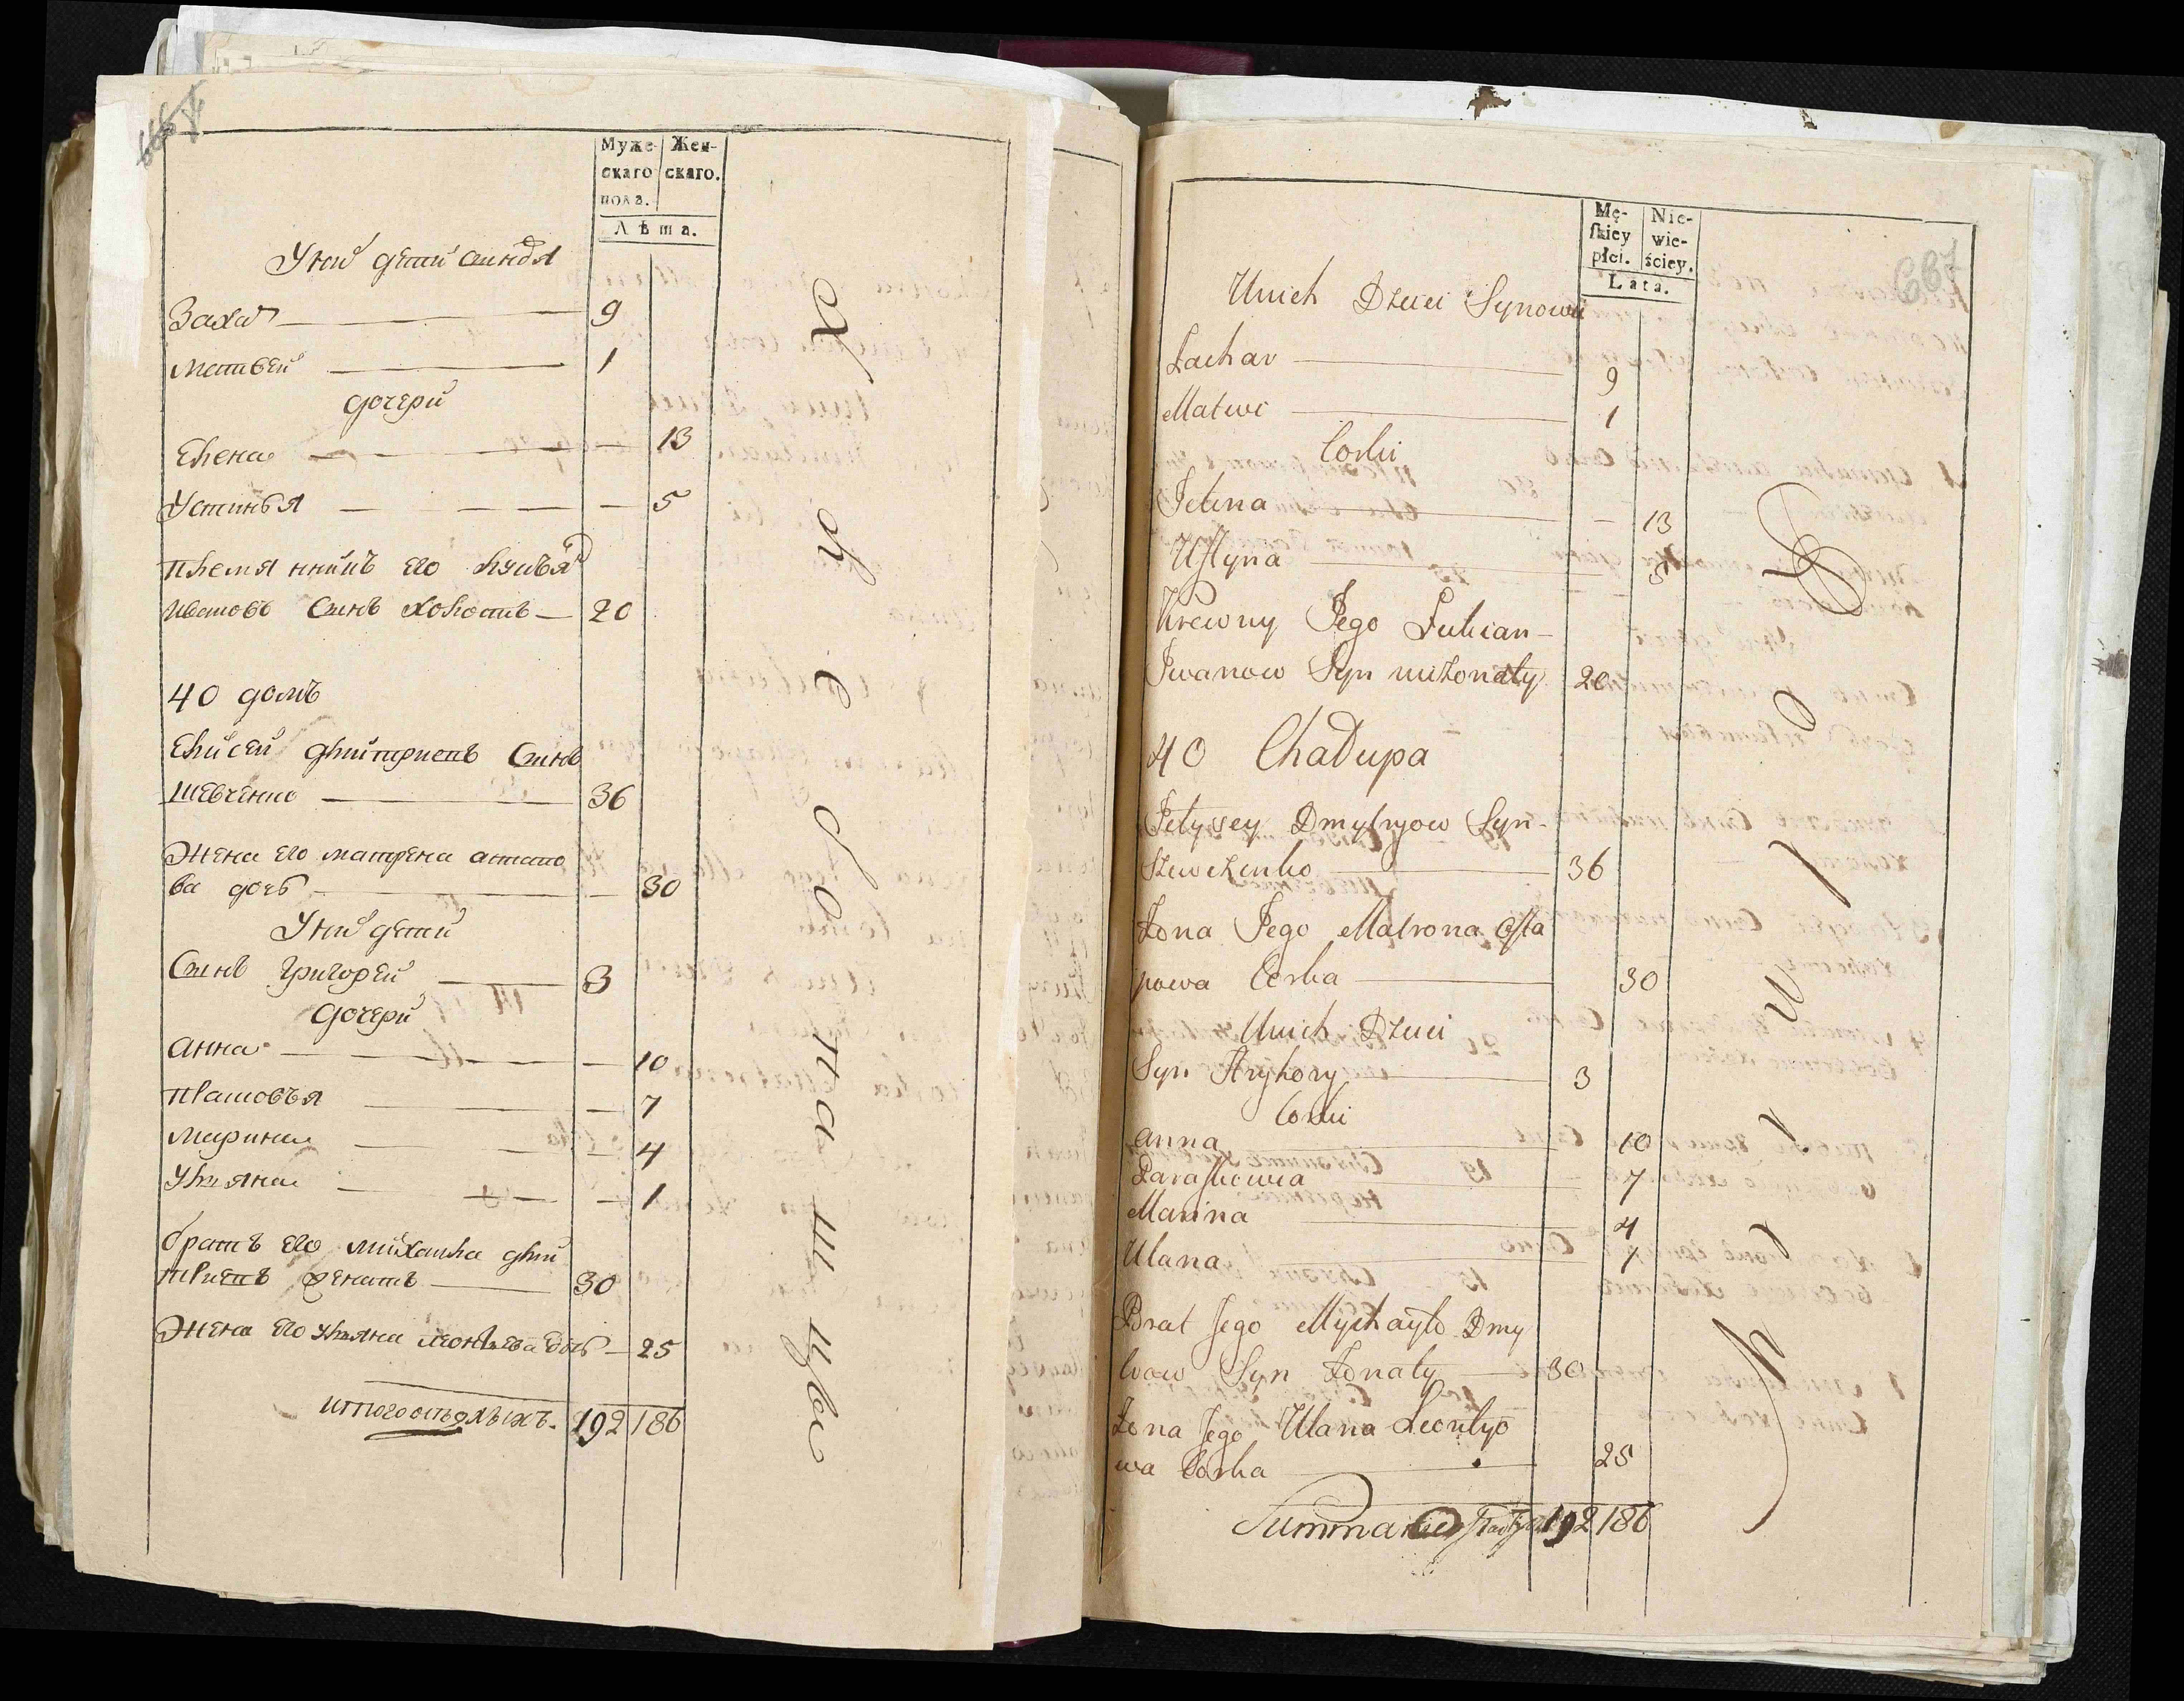 Муже-
скаго
пола.
Жен-
скаго.
Лѣта.
У них дети синовя
Захар 9
Матвей 1
дочери
Елена — 13
Устинья — 5
племянникъ его Лукьян
Ивановъ Синъ холостъ — 20
40 домъ
Елисей Дмитриевъ Синъ
Шевченко 36
Жена его Матрена Астапо
ва дочь — 30
У них дети
Синъ Григорей 3
дочери
Анна — 10
Прасковья — 7
Марина — 4
Уляна — 1
братъ его Михаила Дми
триевъ женатъ 30
Жена его Уляна Леонтьева дочь — 25
итого отъ 192 186
667
Mę-
skiey
płci.
Nie-
wie-
ściey.
Lata.
Unich Dzieci Synowie
Zachar 9
Matwi 1
Corki
Jelena — 13
Ustyna 5
Krewny Jego Lukian
Iwanow Syn nieżonaty 20
40 Chałupa
Jelysey Dmytryow Syn
Szewczenko 36
Żona Jego Matrona Osta
powa Corka 30
Unich Dzieci
Syn Hryhory 3
Corki
Anna 10
Paraskiewia 7
Marina 4
Ulana 1
Brat Jego Mychayło Dmy
trow Syn Żonaty — 30
Żona Jego Ulana Leontyo
wa Corka 25
Summa 192 186